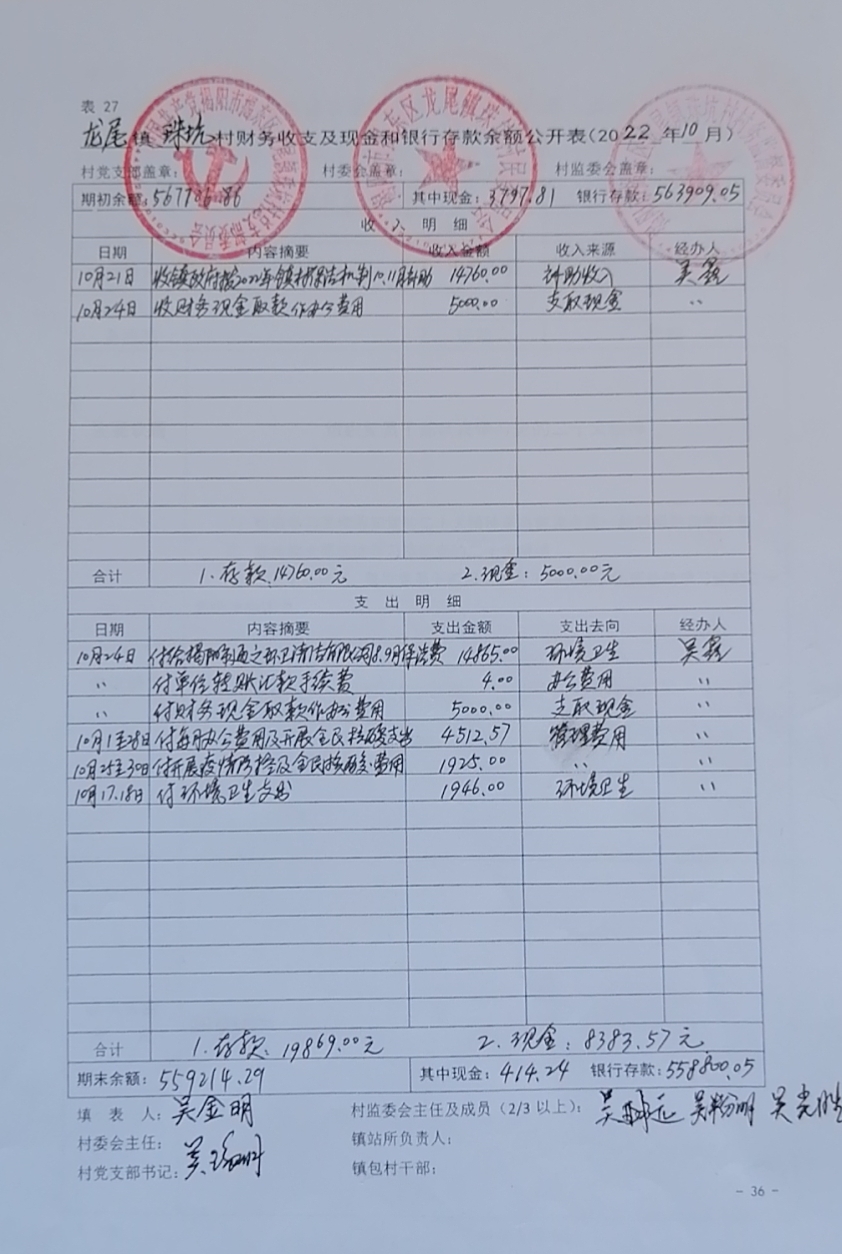 表 27
龙尾镇 珠坑村财务收支及现金和银行存款余额公开表(2022年10月)
村党支部盖章: 村委会盖章: 村监委会盖章:
期初余额: 567706.86 其中现金: 3797.81 银行存款: 563909.05
收入明细
日期 内容摘要 收入金额 收入来源 经办人
10月21日 收镇政府拨2022年镇村保洁机制10.11月补助 14760.00 补助收入 吴鑫
10月24日 收财务现金取款作办公费用 5000.00 支取现金 〃
合计 1.存款:14760.00元 2.现金:5000.00元
支出明细
日期 内容摘要 支出金额 支出去向 经办人
10月24日 付给揭阳市通之环卫清洁有限公司8.9月保洁费 14865.00 环境卫生 吴鑫
〃 付单位转账汇款手续费 4.00 办公费用 〃
〃 付财务现金取款作办公费用 5000.00 支取现金 〃
10月1至28日 付每月办公费用及开展全民核酸支出 4512.57 管理费用 〃
10月25至30日 付开展疫情防控及全民核酸费用 1925.00 〃 〃
10月17.18日 付环境卫生支出 1946.00 环境卫生 〃
合计 1.存款:19869.00元 2.现金:8383.57元
期末余额: 559214.29 其中现金: 414.24 银行存款: 558800.05
填表人: 吴金明 村监委会主任及成员(2/3以上):
村委会主任: 镇站所负责人:
村党支部书记: 镇包村干部:
- 36 -